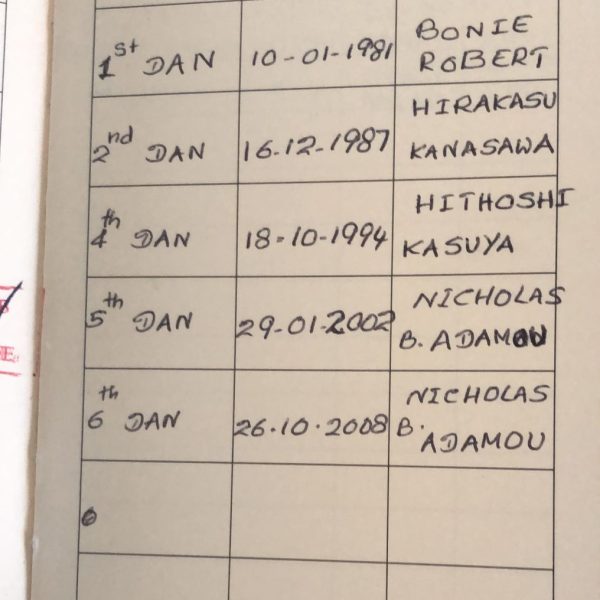 1st DAN 10-01-1981 BONIE
ROBERT
2nd DAN 16-12-1987 HIRAKASU
KANASAWA
4th DAN 18-10-1994 HITHOSHI
KASUYA
5th DAN 29-01-2002 NICHOLAS
B. ADAMOU
6th DAN 26.10.2008 NICHOLAS
B. ADAMOU
6